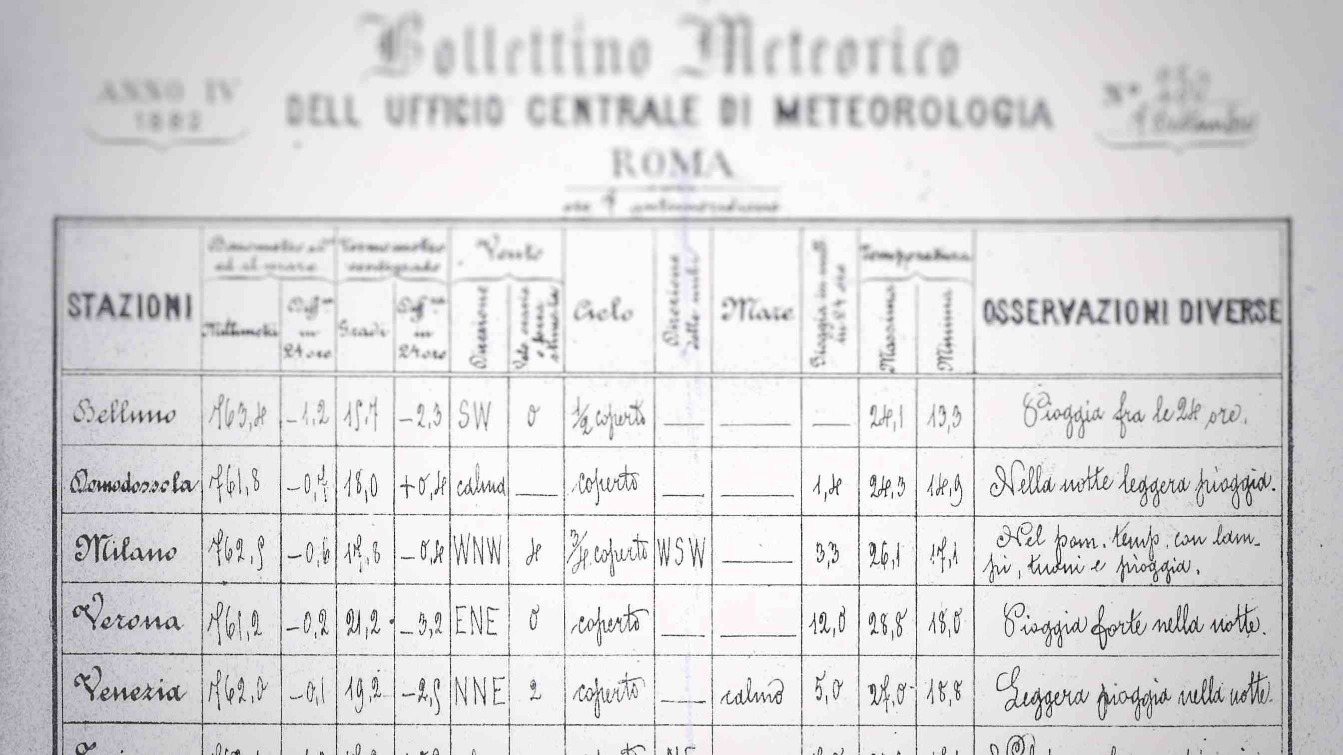 Bollettino Meteorico
ANNO IV
1882
DELL UFFICIO CENTRALE DI METEOROLOGIA
Nº
ROMA
ore 9 antimeridiane
STAZIONI
Barometro
ed al mare
Termometro
centigrado
Vento
Cielo
Direzione
delle nubi
Mare
Pioggia in mill
in 24 ore
Temperatura
OSSERVAZIONI DIVERSE
Millimetri
Diff
in
24 ore
Gradi
Diff
in
24 ore
Direzione
Massima
Minima
Belluno 763,4 -1,2 15,7 -2,3 SW 0 1/2 coperto — — — 24,1 13,3 Pioggia fra le 24 ore.
Domodossola 761,8 18,0 +0,4 calma — coperto — — 1,4 24,3 14,9 Nella notte leggera pioggia.
Milano 762,5 -0,6 17,8 -0,4 WNW 4 3/4 coperto WSW — 3,3 26,1 17,1 Nel pom. temp. con lam-
pi, tuoni e pioggia.
Verona 761,2 -0,2 21,2 -3,2 ENE 0 coperto — — 12,0 28,8 18,0 Pioggia forte nella notte.
Venezia 762,0 -0,1 19,2 -2,5 NNE 2 coperto — calmo 5,0 27,0 18,8 Leggera pioggia nella notte.